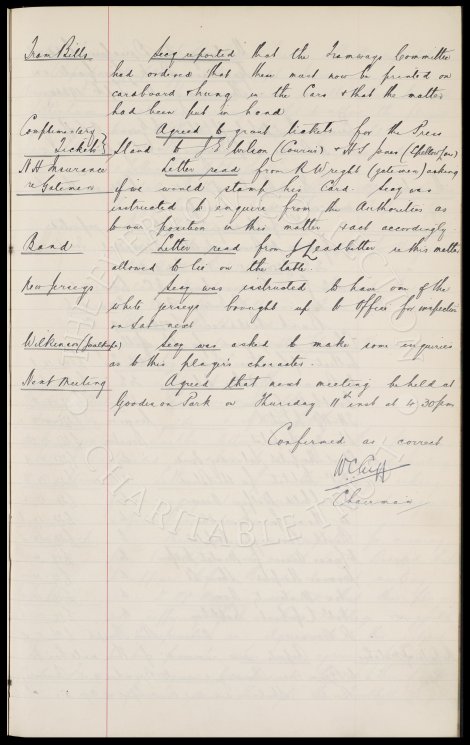 Tram Bills Secy reported that the Tramways Committee
had ordered that these must now be printed on
cardboard & hung in the Cars & that the matter
had been put in hand
Complimentary Tickets } Agreed to grant tickets for the Press
Stand to J E Wilson (Courier) & H S Jones
N H Insurance Letter read from R Wright (gateman) asking
re Gateman if we would stamp his Card. Secy was
instructed to enquire from the Authorities as
to our position in this matter & act accordingly.
Band Letter read from J Leadbetter re this matter
allowed to lie on the table.
New Jerseys Secy was instructed to have one of the
white jerseys brought up to Office for inspection
on Sat next
Wilkinson Secy was asked to make some enquiries
as to this player's character.
Next Meeting Agreed that next meeting be held at
Goodison Park on Thursday 11th inst at 4.30pm
Confirmed as correct
W C Cuff
Chairman
CHARITABLE